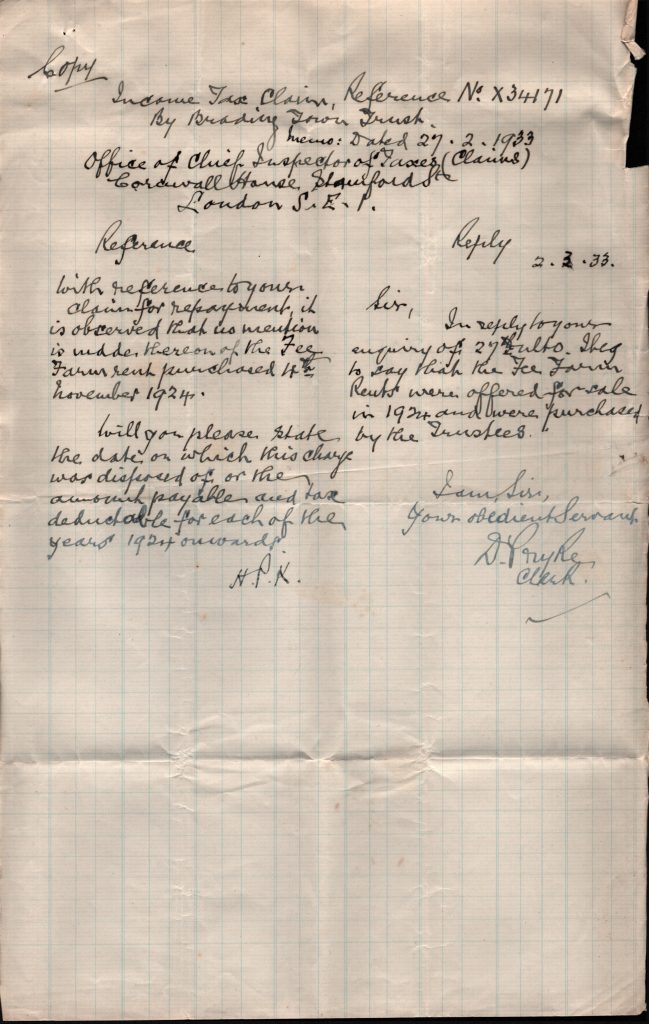 Copy
Income Tax Claim, Reference No. X34171
By Brading Town Trust.
Memo: Dated 27.2.1933
Office of Chief Inspector of Taxes (Claims)
Cornwall House Stamford St
London S.E.1.
Reference
With reference to your
claim for repayment, it
is observed that no mention
is made thereon of the Fee
Farm rent purchased 4th
November 1924.
Will you please state
the date on which this charge
was disposed of or the
amount payable and tax
deductable for each of the
years 1924 onwards
H.P.K.
Reply
2.3.33.
Sir,
In reply to your
enquiry of 27th ulto. I beg
to say that the Fee Farm
Rents were offered for sale
in 1924 and were purchased
by the Trustees."
I am, Sir,
Your obedient Servant
Clerk.